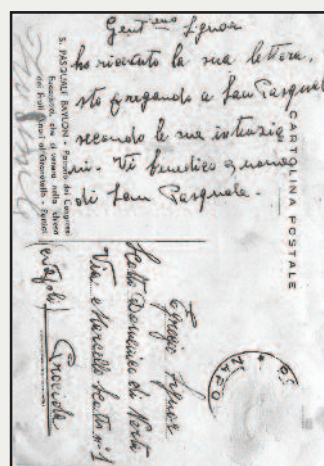 Gent.imo Signor
ho ricevuto la sua lettera,
sto pregando a San Pasquale
secondo le sue intenzio
ni. Vi benedico a nome
di San Pasquale.
CARTOLINA POSTALE
S. PASQUALE BAYLON - Patrono dei Congressi
Eucaristici, che si venera nella chiesa
dei Frati Minori al Granatello - Portici
(Napoli)
Egregio Signor
Scotto Domenico di Perta
Via Marcello Scotti n° 1
Procida